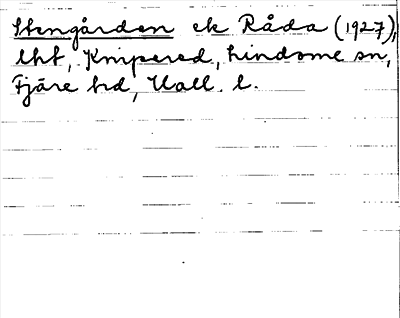 Stengården ek Råda (1927),
lht, Knipered, Lindome sn,
Fjäre hd, Hall. l.